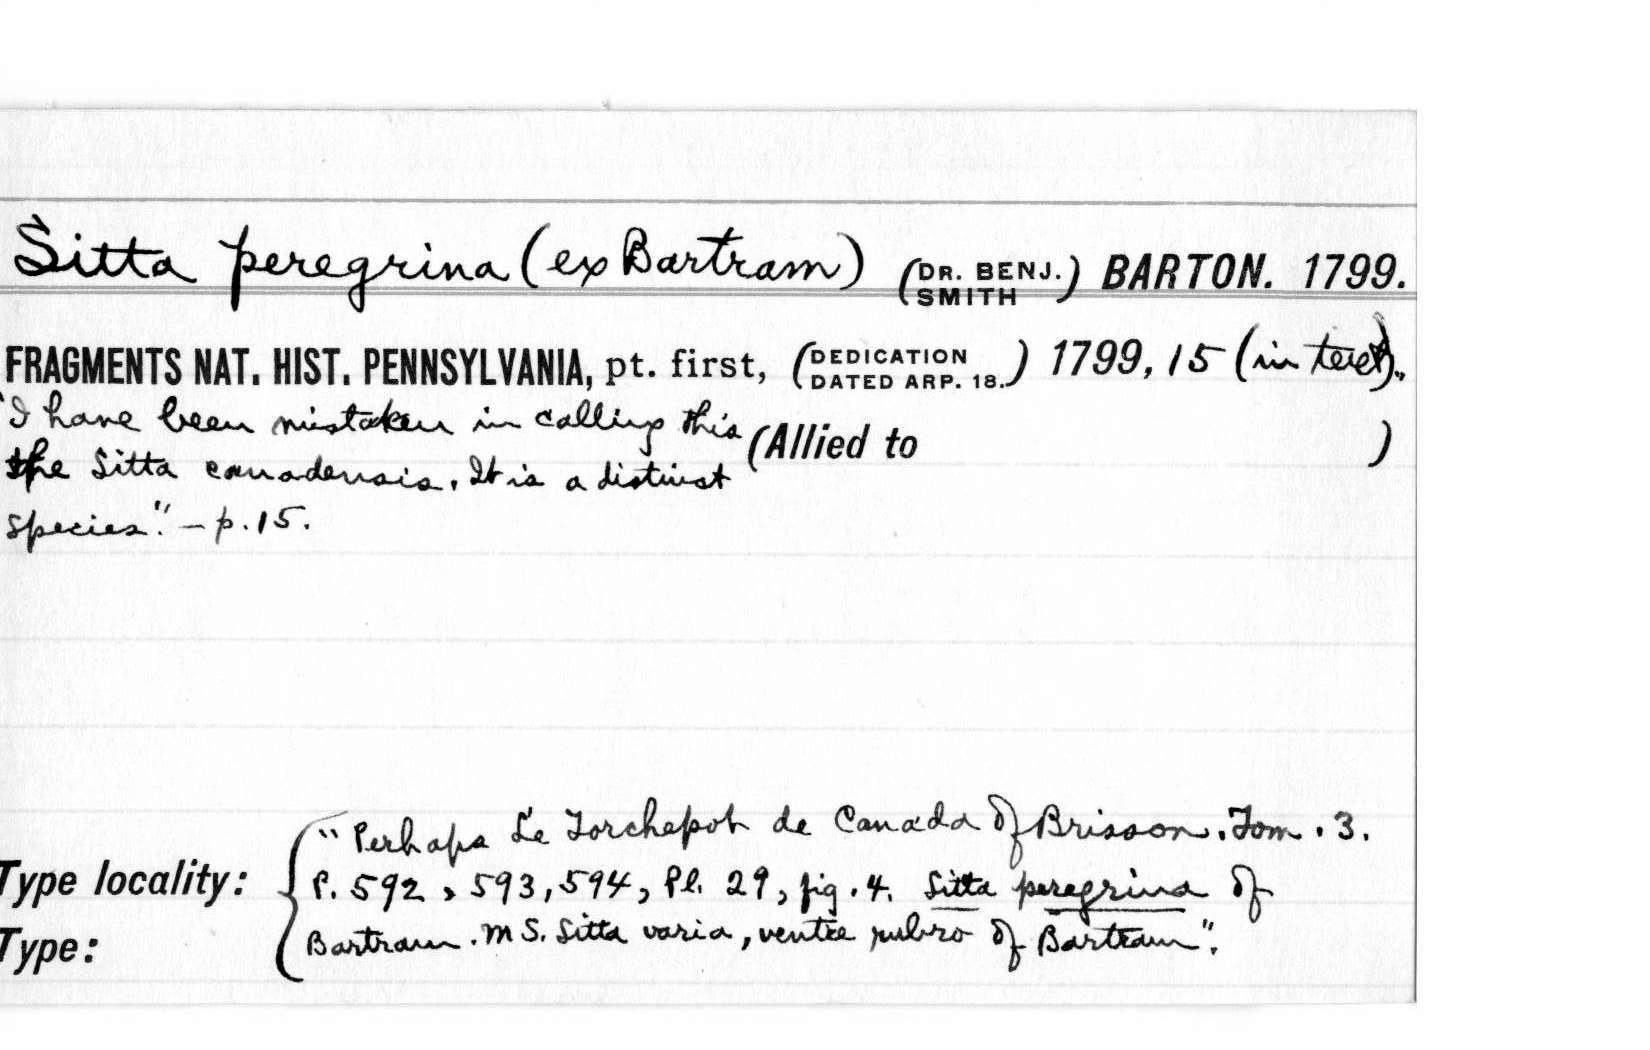 Sitta peregrina (ex Bartram) (DR. BENJ. SMITH) BARTON. 1799.
FRAGMENTS NAT. HIST. PENNSYLVANIA, pt. first, (DEDICATION DATED ARP. 18.) 1799, 15 (in text).
"I have been mistaken in calling this
(Allied to )
the Sitta canadensis. It is a distinct
species." — p. 15.
"Perhaps Le Torchepot de Canada of Brisson. Tom. 3.
Type locality: P. 592, 593, 594, Pl. 29, fig. 4. Sitta peregrina of
Type: Bartram. MS. Sitta varia, ventre rubro of Bartram".